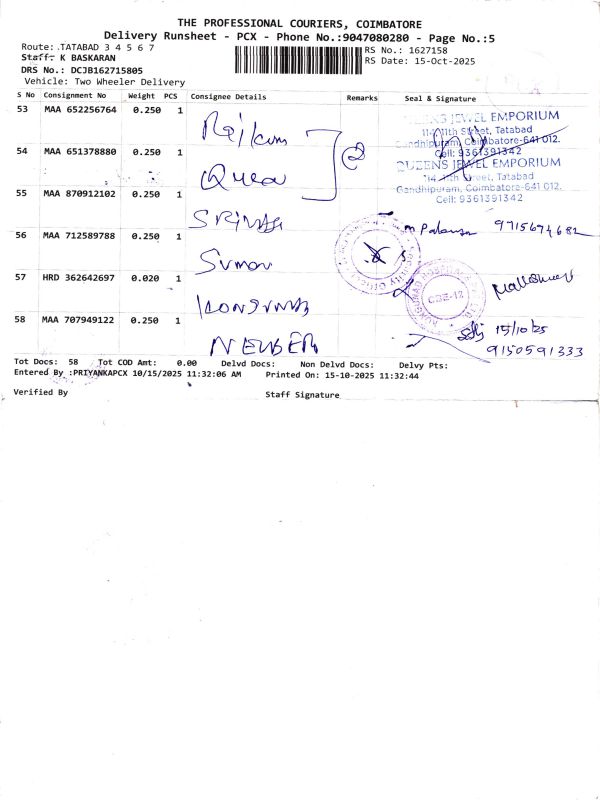 THE PROFESSIONAL COURIERS, COIMBATORE
Delivery Runsheet - PCX - Phone No.:9047080280 - Page No.:5
Route: TATABAD 3 4 5 6 7
RS No.: 1627158
Staff: K BASKARAN
RS Date: 15-Oct-2025
DRS No.: DCJB162715805
Vehicle: Two Wheeler Delivery
S No Consignment No Weight PCS Consignee Details Remarks Seal & Signature
53 MAA 652256764 0.250 1 Rajkum
QUEENS JEWEL EMPORIUM
114-11th Street, Tatabad
Gandhipuram, Coimbatore-641 012.
Cell: 9361391342
54 MAA 651378880 0.250 1 Queen
QUEENS JEWEL EMPORIUM
114-11th Street, Tatabad
Gandhipuram, Coimbatore-641 012.
Cell: 9361391342
55 MAA 870912102 0.250 1
56 MAA 712589788 0.250 1 Suman
57 HRD 362642697 0.020 1
CBE-12
58 MAA 707949122 0.250 1
15/10/25
9150591333
Tot Docs: 58 Tot COD Amt: 0.00 Delvd Docs: Non Delvd Docs: Delvy Pts:
Entered By :PRIYANKAPCX 10/15/2025 11:32:06 AM Printed On: 15-10-2025 11:32:44
Verified By Staff Signature